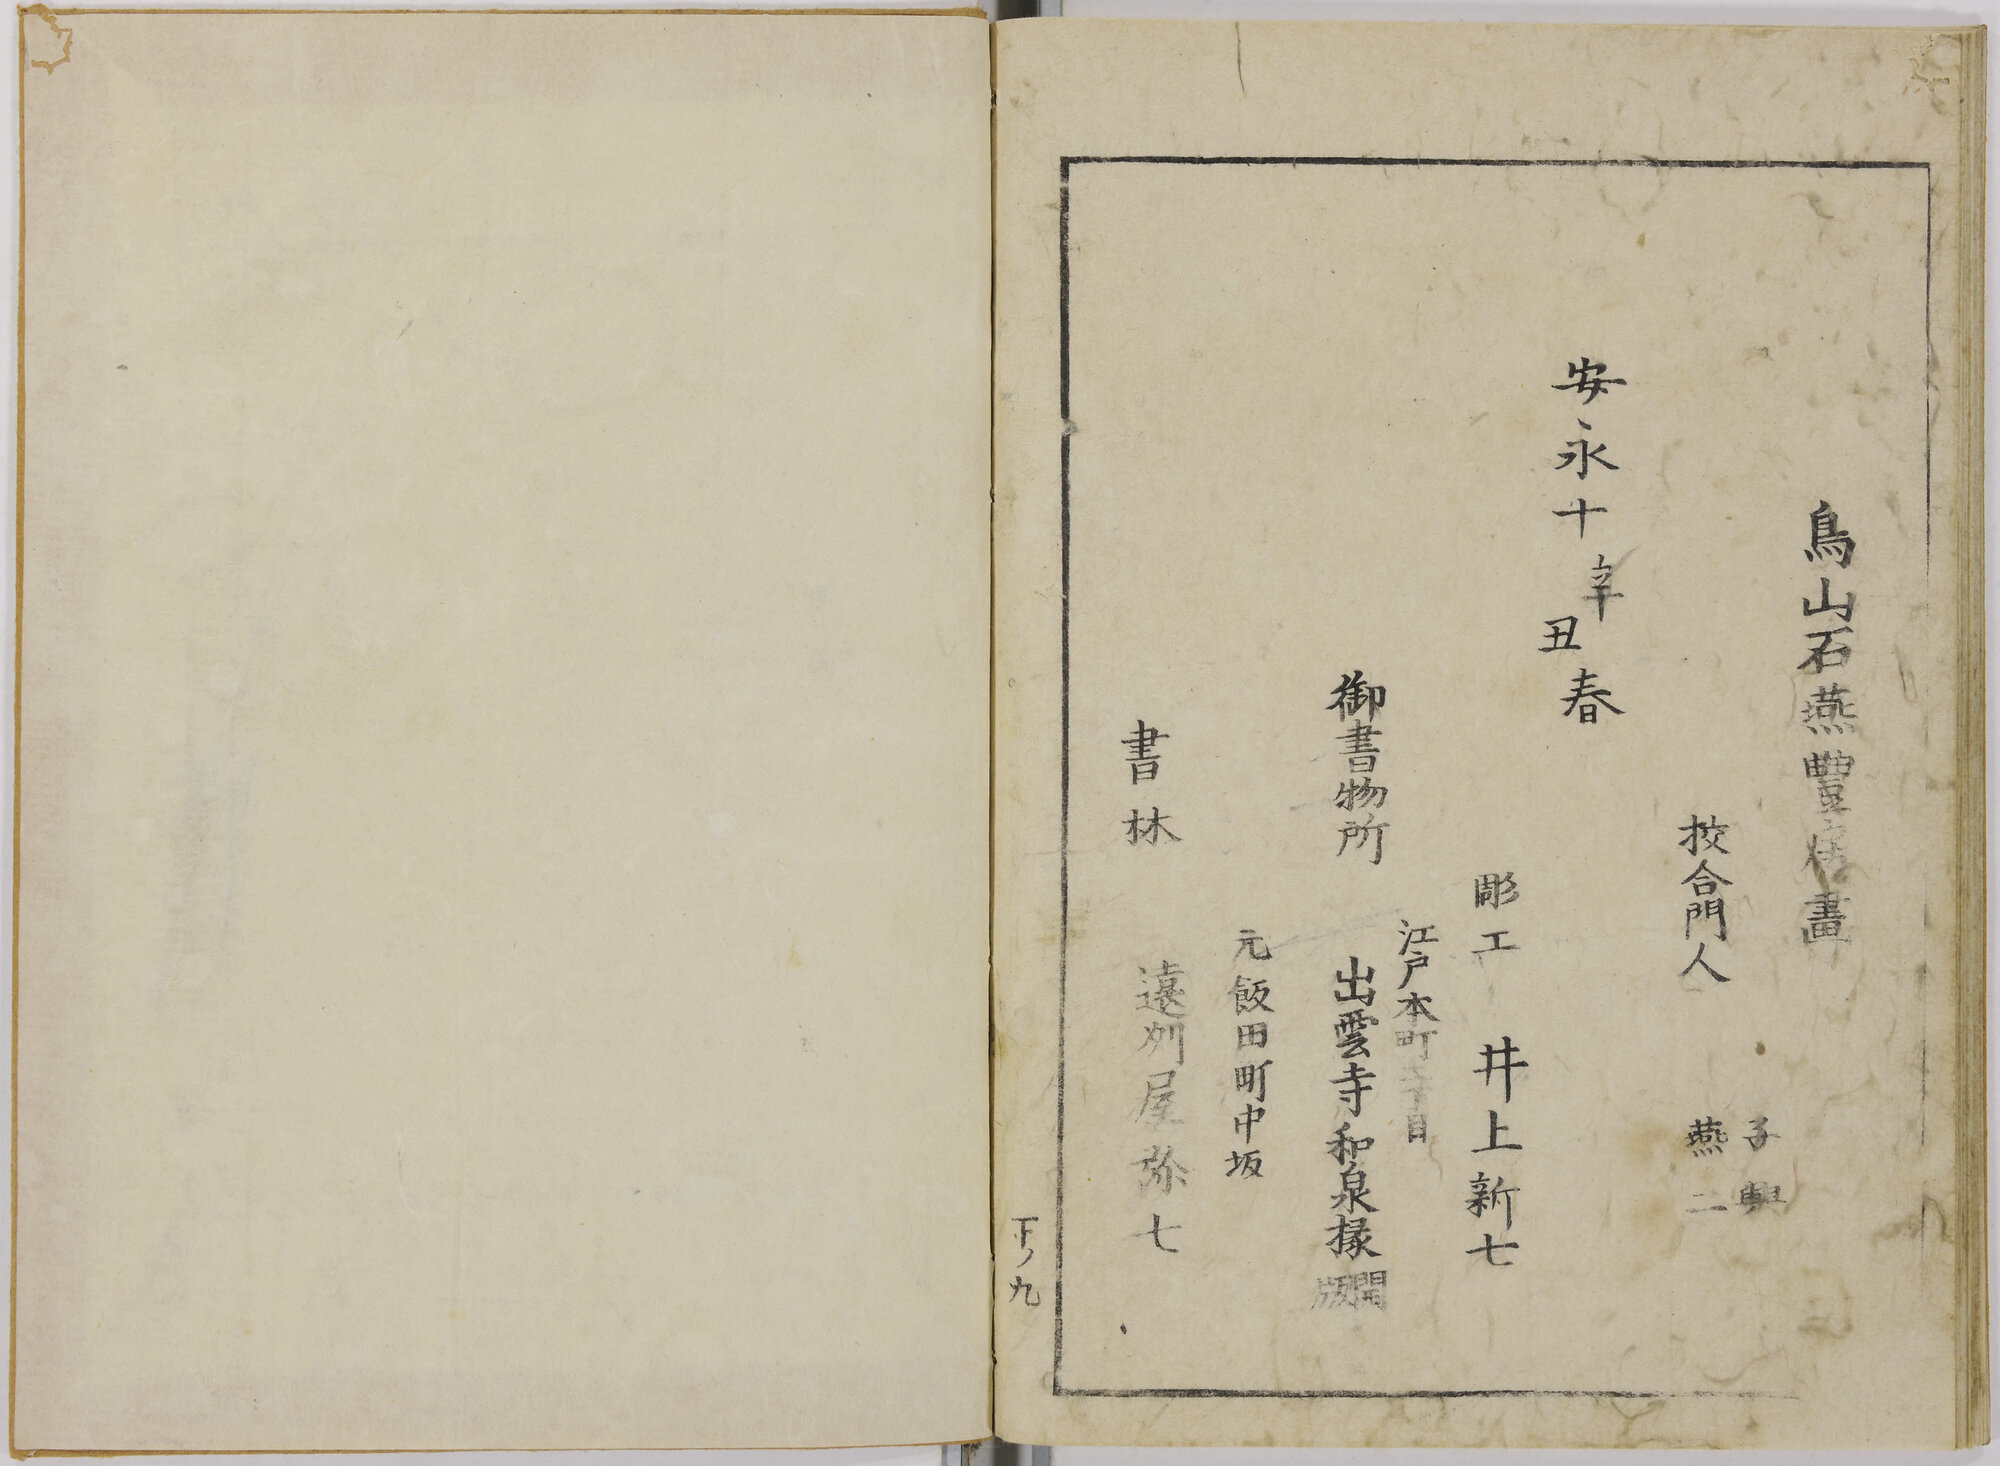 鳥山石燕豐房畫
挍合門人
子興
燕二
安永十辛丑春
彫工 井上新七
江戸本町目
御書物所 出雲寺和泉掾開版
元飯田町中坂
書林 遠州屋弥七
下ノ九